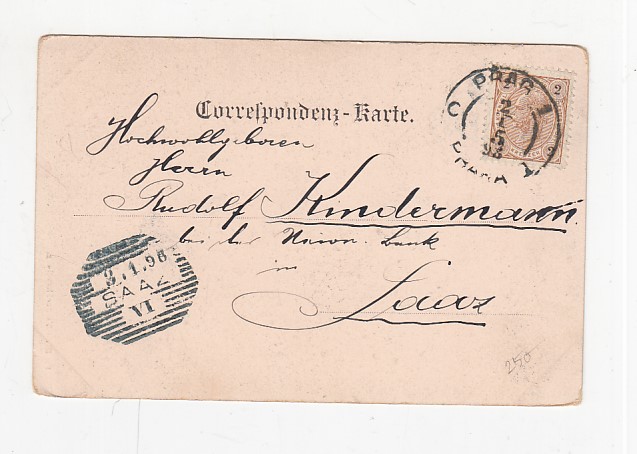 Correspondenz-Karte.
PRAG 1
PRAHA 1
2
2
Hochwohlgeboren
Herrn
Rudolf Kindermann
bei der Union. bank
in
Saaz
2.1.96
SAAZ
VI
250